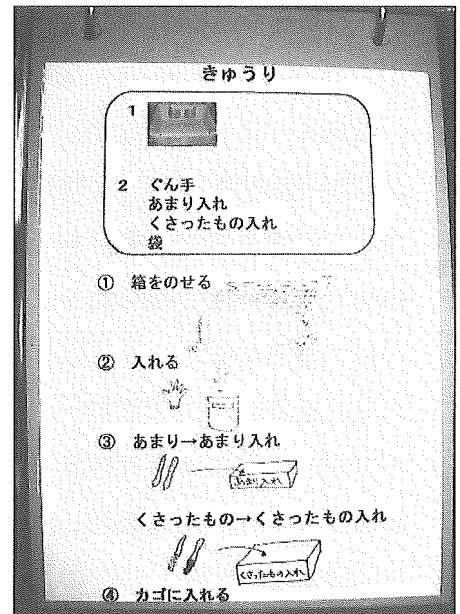 きゅうり
1
2 ぐん手
あまり入れ
くさったもの入れ
袋
① 箱をのせる
② 入れる
③ あまり→あまり入れ
あまり入れ
くさったもの→くさったもの入れ
くさったもの入れ
④ カゴに入れる